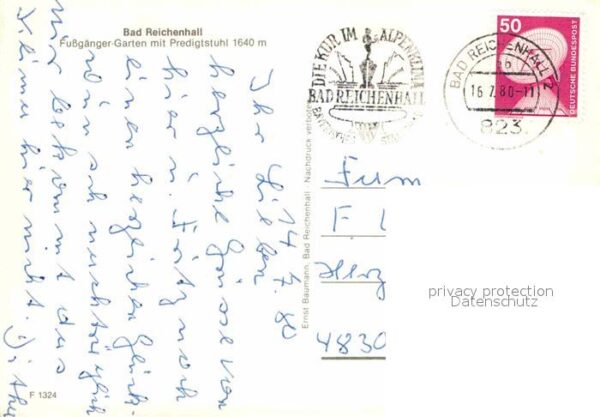 Bad Reichenhall
Fußgänger-Garten mit Predigtstuhl 1640 m
DIE KUR IM ALPENKLIMA
BAD REICHENHALL
50
DEUTSCHE BUNDESPOST
BAD REICHENHALL 2
b
16.7.80-11
823
14.7.80
Ihr Lieben
herzliche Grüsse von
hier u. Fritz noch
einen herzlichen Glück-
wunsch nachträglich
Mir bekommt das
Klima hier nicht.
Ernst Baumann, Bad Reichenhall Nachdruck verboten
Fam
F
Herz
4830
privacy protection
Datenschutz
F 1324